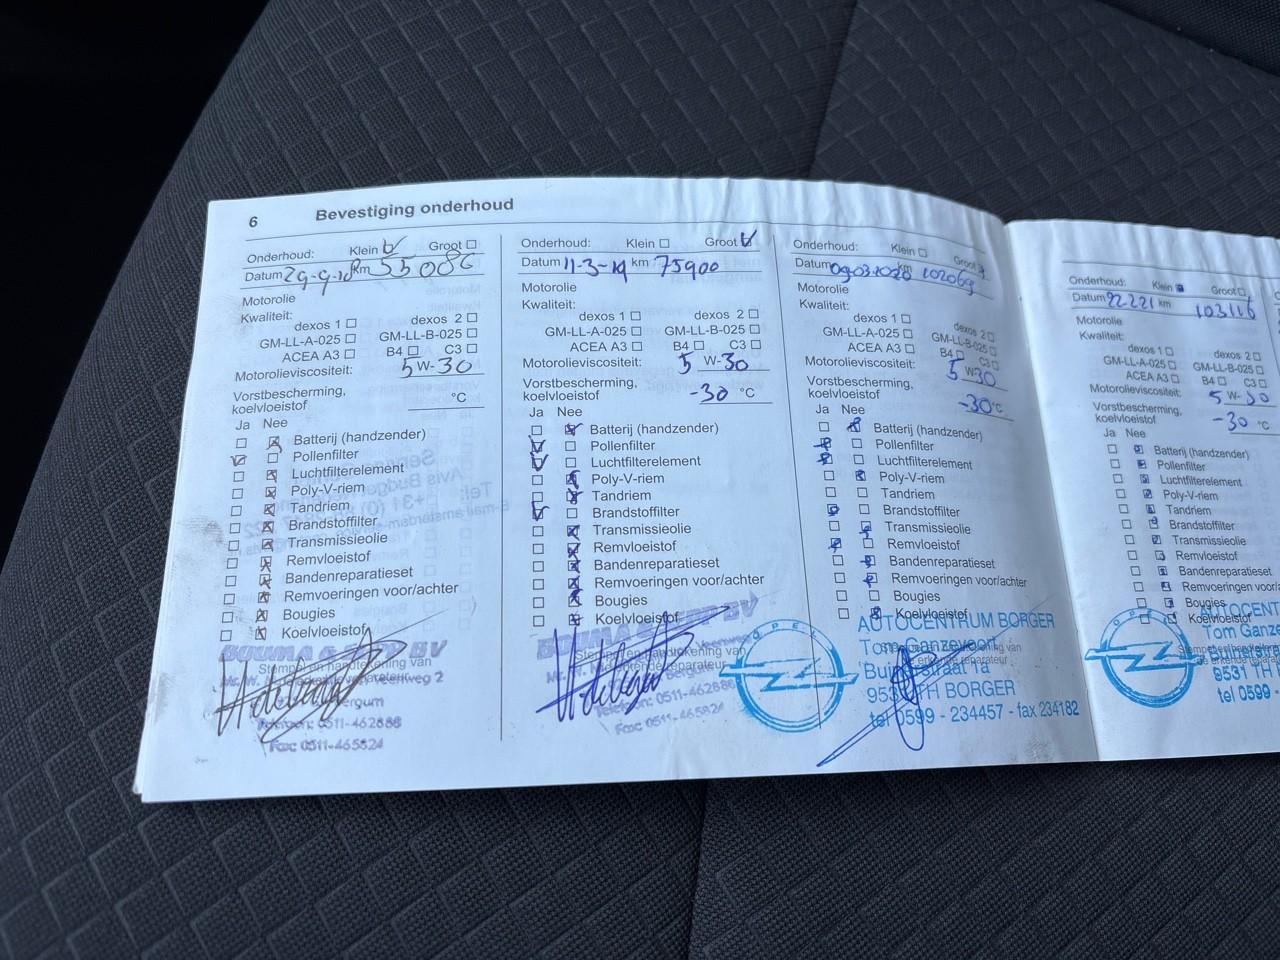 6 Bevestiging onderhoud
Onderhoud: Klein Groot
Datum km 55 086
Motorolie
Kwaliteit:
dexos 1 dexos 2
GM-LL-A-025 GM-LL-B-025
ACEA A3 B4 C3
Motorolieviscositeit: 5 W-30
Vorstbescherming,
koelvloeistof °C
Ja Nee
Batterij (handzender)
Pollenfilter
Luchtfilterelement
Poly-V-riem
Tandriem
Brandstoffilter
Transmissieolie
Remvloeistof
Bandenreparatieset
Remvoeringen voor/achter
Bougies
Koelvloeistof
Stempel en handtekening van
Telefoon: 0511-462888
Fax: 0511-465824
Onderhoud: Klein Groot
Datum 11-3-19 km 75900
Motorolie
Kwaliteit:
dexos 1 dexos 2
GM-LL-A-025 GM-LL-B-025
ACEA A3 B4 C3
Motorolieviscositeit: 5 W-30
Vorstbescherming,
koelvloeistof -30 °C
Ja Nee
Batterij (handzender)
Pollenfilter
Luchtfilterelement
Poly-V-riem
Tandriem
Brandstoffilter
Transmissieolie
Remvloeistof
Bandenreparatieset
Remvoeringen voor/achter
Bougies
Koelvloeistof
BOUMA BV
Stempel en handtekening van
Fax: 0511-465824
Onderhoud: Klein Groot
Datum 09-03-2020 km 102069
Motorolie
Kwaliteit:
dexos 1 dexos 2
GM-LL-A-025 GM-LL-B-025
ACEA A3 B4 C3
Motorolieviscositeit: 5 W-30
Vorstbescherming,
koelvloeistof -30 °C
Ja Nee
Batterij (handzender)
Pollenfilter
Luchtfilterelement
Poly-V-riem
Tandriem
Brandstoffilter
Transmissieolie
Remvloeistof
Bandenreparatieset
Remvoeringen voor/achter
Bougies
Koelvloeistof
OPEL
AUTOCENTRUM BORGER
Tom Ganzevoort
Buinerstraat 1a
9531 TH BORGER
tel 0599 - 234457 - fax 234182
Onderhoud: Klein Groot
Datum km
Motorolie
Kwaliteit:
dexos 1 dexos 2
GM-LL-A-025 GM-LL-B-025
ACEA A3 B4 C3
Motorolieviscositeit: 5 W-30
Vorstbescherming,
koelvloeistof -30 °C
Ja Nee
Batterij (handzender)
Pollenfilter
Luchtfilterelement
Poly-V-riem
Tandriem
Brandstoffilter
Transmissieolie
Remvloeistof
Bandenreparatieset
Remvoeringen voor/
Bougies
Koelvloeistof
OPEL
AUTOCENT
Tom Ganze
9531 TH
tel 0599